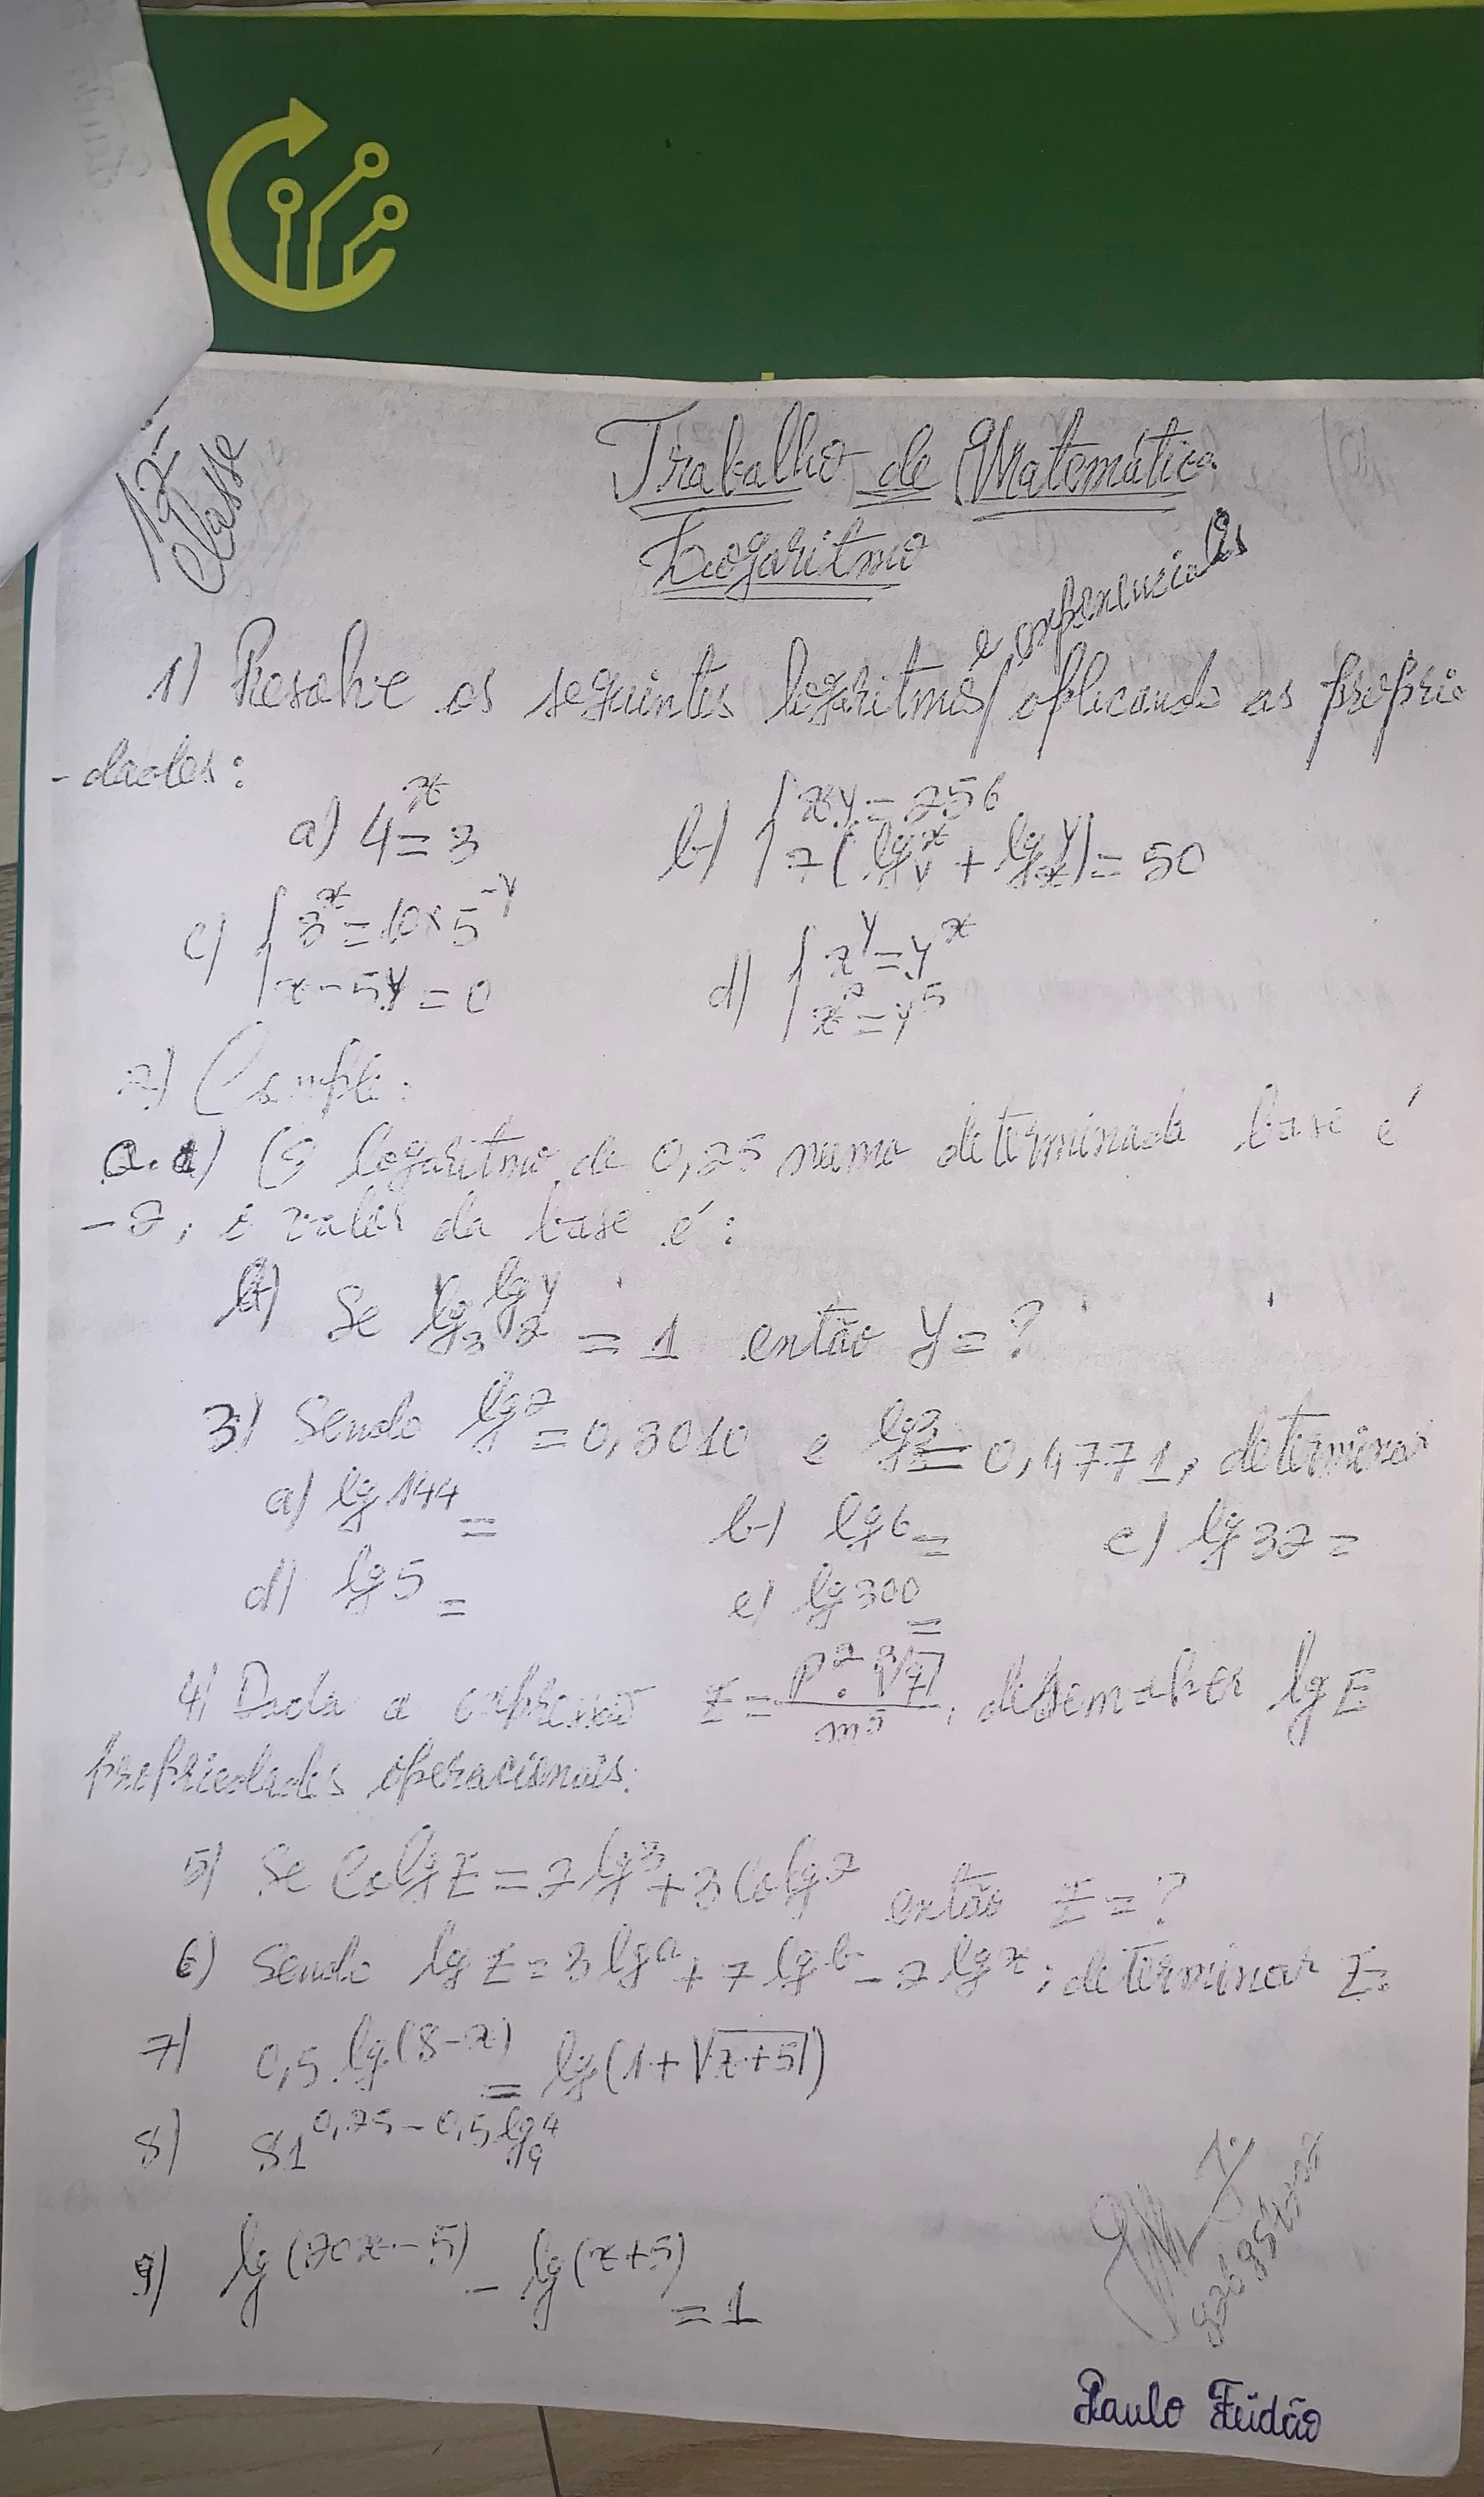 12ª classe
Trabalho de Matemática
Logaritmo
1) Resolve os seguintes logaritmos/ e exponenciales aplicando as proprie
-dades:
a) 4^x = 3
b) { xy = 256
7(lg_y^x + lg_x^y) = 50
c) { 3^x = 10 × 5^-y
x - 5y = 0
d) { x^y = y^x
x^2 = y^5
2) Comple:
a.a) O logaritmo de 0,25 numa determinada base é
-2, o valor da base é:
b) Se lg_3 lg_2^y = 1 então y = ?
3) Sendo lg2 = 0,3010 e lg3 = 0,4771, determinar
a) lg144 =
b) lg6 =
c) lg32 =
d) lg5 =
e) lg300 =
4) Dada a expressão Z = , lgE
propriedades operacionais.
5) Se ColgZ = 2lg3 + 3Colg2 então Z = ?
6) Sendo lgZ = 3lga + 7lgb - 2lgx; determinar Z.
7) 0,5.lg(8-x) = lg(1+√x+5)
8) 81^0,25-0,5lg_9^4
9) lg(20x-5) - lg(x+5) = 1
Paulo